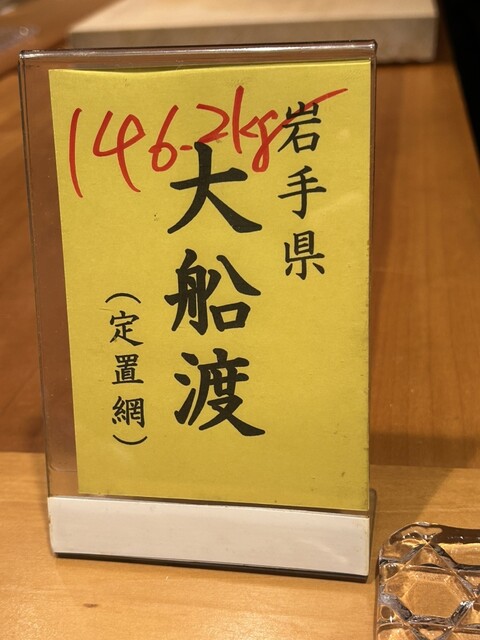 146.2kg
岩手県
大船渡
(定置網)